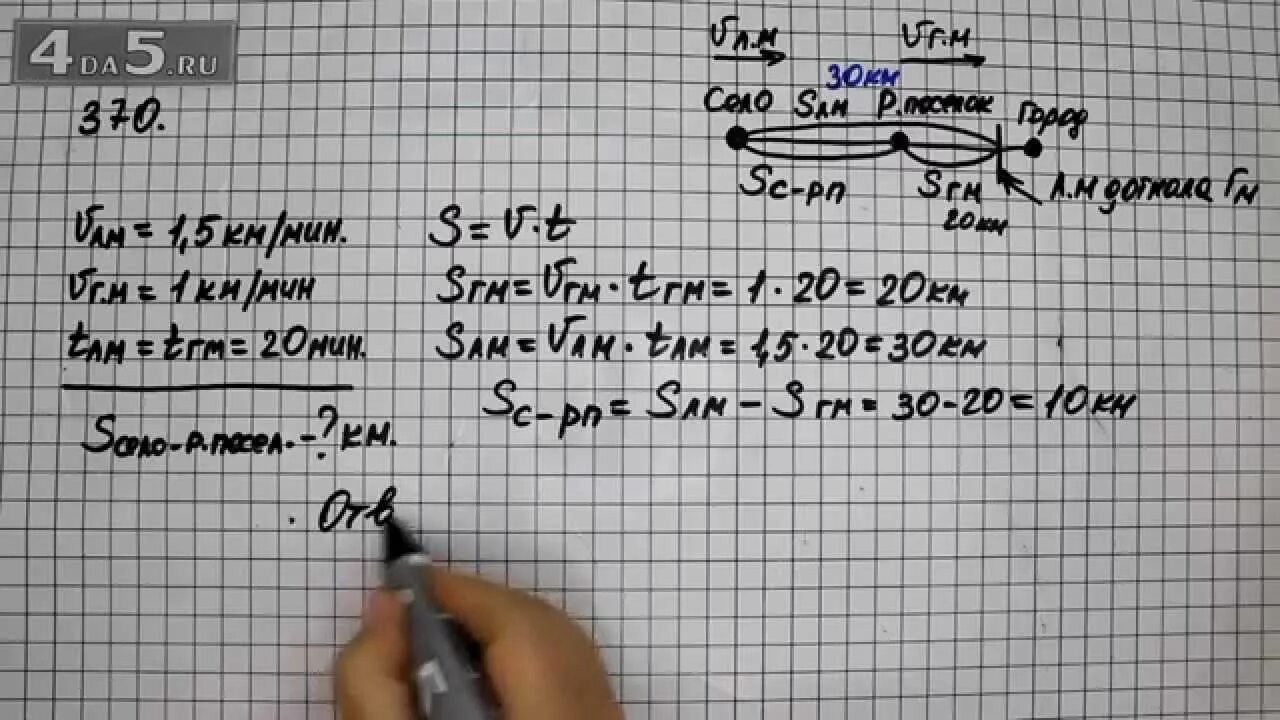 4 ДА 5.RU
370.
Vл.м Vг.м
30км
Село Sлм Р.поселок Город
Sс-рп Sгм Л.М догнала Гм
20км
Vлм = 1,5 км/мин.
Vг.м = 1 км/мин
tлм = tгм = 20мин.
Sсело-р.посел. - ? км.
S = V · t
Sгм = Vгм · tгм = 1 · 20 = 20км
Sлм = Vлм · tлм = 1,5 · 20 = 30км
Sс-рп = Sлм - Sгм = 30-20 = 10км
. Отв